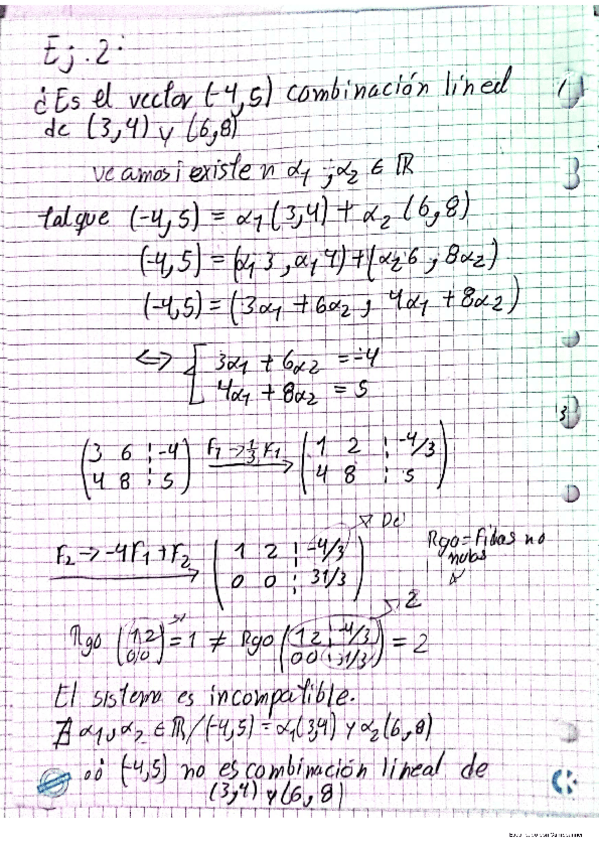 Ej. 2:
¿Es el vector (-4,5) combinación lineal
de (3,4) y (6,8)
veamos i existen α1 ; α2 ∈ ℝ
tal que (-4,5) = α1 (3,4) + α2 (6,8)
(-4,5) = (α1 3 , α1 4) + (α2 6 ; 8α2)
(-4,5) = (3α1 + 6α2 ; 4α1 + 8α2)
⟺ { 3α1 + 6α2 = -4
4α1 + 8α2 = 5
(3 6 ¦ -4) F1 → 1/3 F1 (1 2 ¦ -4/3)
(4 8 ¦ 5) (4 8 ¦ 5)
F2 → -4F1 + F2 (1 2 ¦ -4/3)
(0 0 ¦ 31/3)
Rgo = Filas no
nulas
2
Rgo (1 2 / 0 0) = 1 ≠ Rgo (1 2 ¦ -4/3 / 0 0 ¦ 31/3) = 2
El sistema es incompatible.
∄ α1, α2 ∈ ℝ / (-4,5) = α1(3,4) y α2(6,8)
(-4,5) no es combinación lineal de
(3,4) y (6,8)